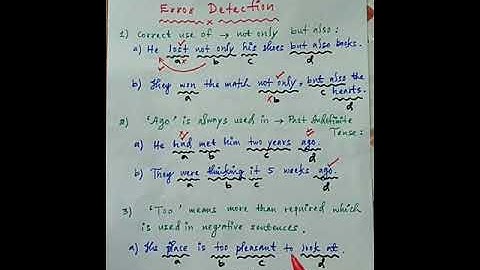 Error Detection
1) Correct use of → not only but also :
a) He lost not only his shoes but also books.
a b c d
b) They won the match not only, but also the
a b c
hearts.
d
2) 'Ago' is always used in → Past Indefinite
Tense :
a) He had met him two years ago.
a b c d
b) They were thinking it 5 weeks ago.
a b c d
3) 'Too' means more than required which
is used in negative sentences.
a) The place is too pleasant to look at.
a b c d